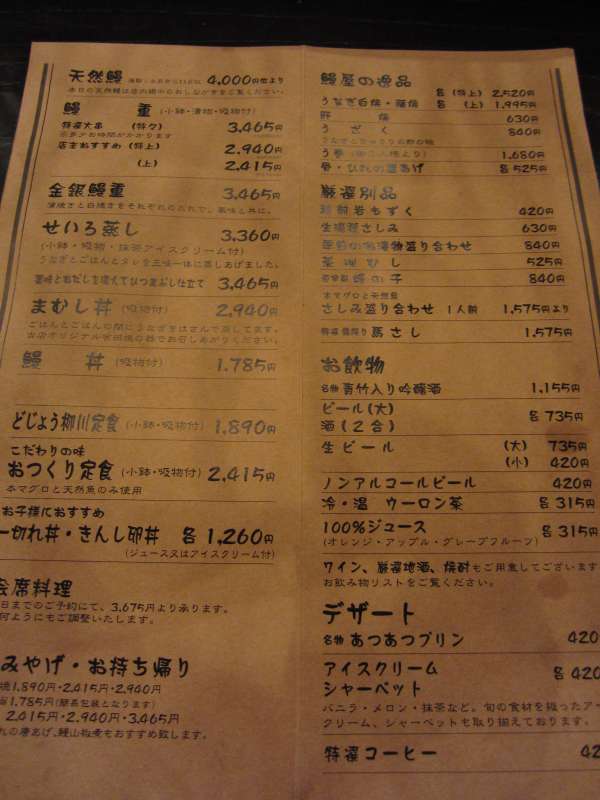 天然鰻 4,000円位より
本日の天然鰻は店内
鰻 重 (小鉢・漬物・吸物付)
特産大串 (特々) 3,465円
お時間がかかります
店主おすすめ (特上) 2,940円
(上) 2,415円
金銀鰻重 3,465円
蒲焼きと白焼きをそれぞれのたれで、薬味と共に。
せいろ蒸し 3,360円
(小鉢・吸物・抹茶アイスクリーム付)
うなぎとごはんとタレを三味一体に蒸しあげました。
薬味とおだしを添えてひつまぶし仕立て 3,465円
まむし丼 (吸物付) 2,940円
ごはんとごはんの間にうなぎをはさんで蒸してます。
当店オリジナル有田焼の器でお召しあがりください。
鰻 丼 (吸物付) 1,785円
どじょう柳川定食 (小鉢・吸物付) 1,890円
こだわりの味
おつくり定食 (小鉢・吸物付) 2,415円
本マグロと天然魚のみ使用
お子様におすすめ
一切れ丼・きんし卵丼 各 1,260円
(ジュース又はアイスクリーム付)
会席料理
日までのご予約にて、3,675円より承ります。
何ようにもご調整いたします。
みやげ・お持ち帰り
焼 1,890円・2,415円・2,940円
1,785円 (簡易包装となります)
2,415円・2,940円・3,465円
れの唐あげ、鰻山椒煮もおすすめ致します。
鰻屋の逸品
うなぎ白焼・蒲焼 各 (特上) 2,520円
(上) 1,995円
肝 焼 630円
う ざ く 840円
うなぎときゅうりの酢の物
う巻 1,680円
骨・ひれの唐あげ 各 525円
厳選別品
岩もずく 420円
生湯葉さしみ 630円
季節の お漬物盛り合わせ 840円
茶碗むし 525円
の子 840円
本マグロと天然魚
さしみ盛り合わせ 1人前 1,575円より
特選 馬さし 1,575円
お飲物
名物 青竹入り吟醸酒 1,155円
ビール (大)
酒 (2合) 各 735円
生ビール (大) 735円
(小) 420円
ノンアルコールビール 420円
冷・温 ウーロン茶 各 315円
100%ジュース 各 315円
(オレンジ・アップル・グレープフルーツ)
ワイン、厳選地酒、焼酎もご用意してございます
お飲み物リストをご覧ください。
デザート
名物 あつあつプリン 420
アイスクリーム
シャーベット 各 420
バニラ・メロン・抹茶など。旬の食材を使ったア
クリーム、シャーベットも取り揃えております。
特選コーヒー 42